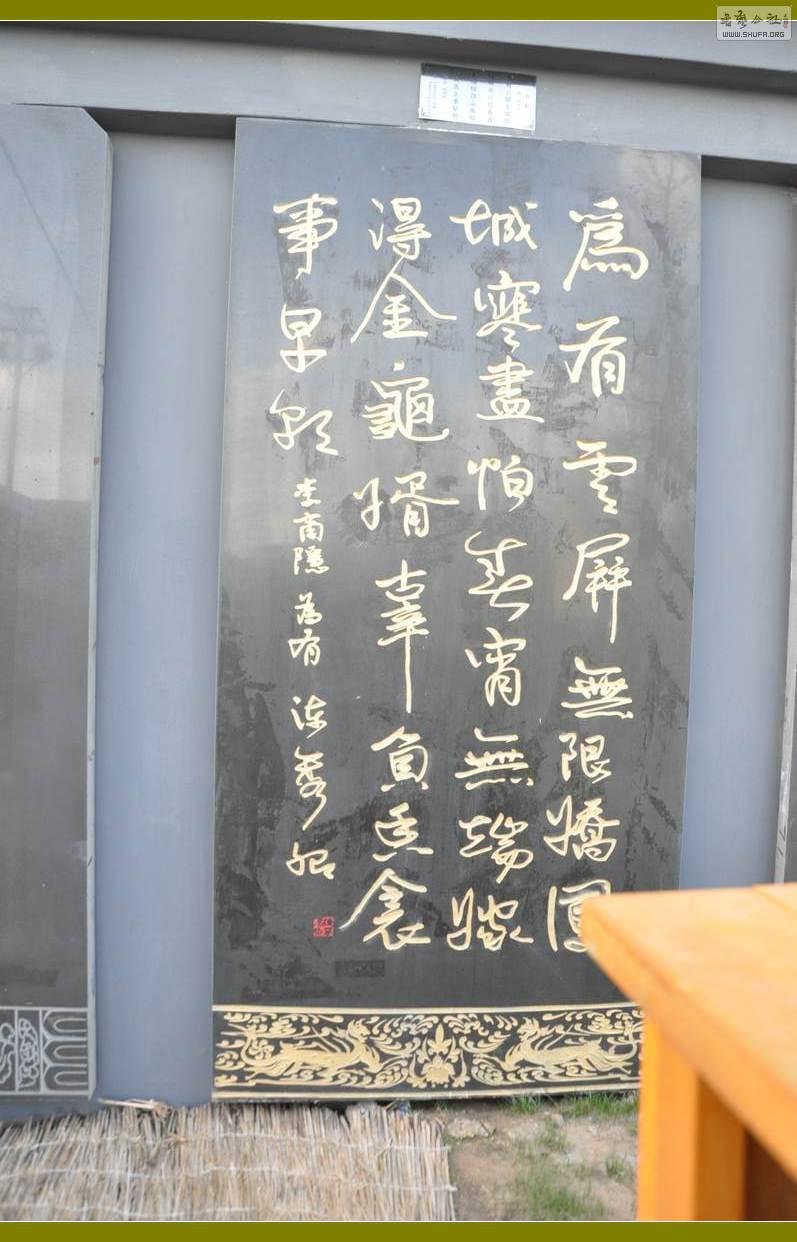 爲有雲屏無限嬌鳳
城寒盡怕春宵無端嫁
得金龜婿辜負香衾
事早朝 李商隱 為有 秀
WWW.SHUFA.ORG